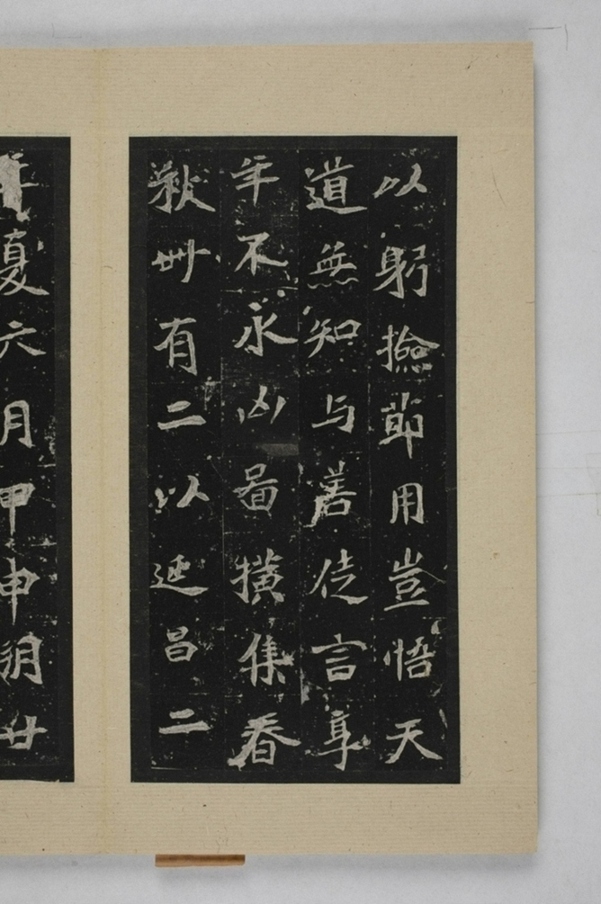 以躬撿節用豈悟天
道無知与善徒言享
年不永凶啚撗集春
秋卌有二以延昌二
年夏六月甲申朔廿